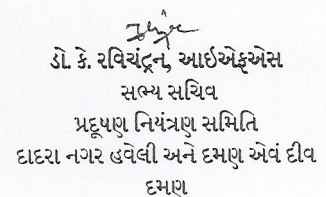 ડો. કે. રવિચંદ્રન, આઇએફએસ
સભ્ય સચિવ
પ્રદૂષણ નિયંત્રણ સમિતિ
દાદરા નગર હવેલી અને દમણ એવં દીવ
દમણ